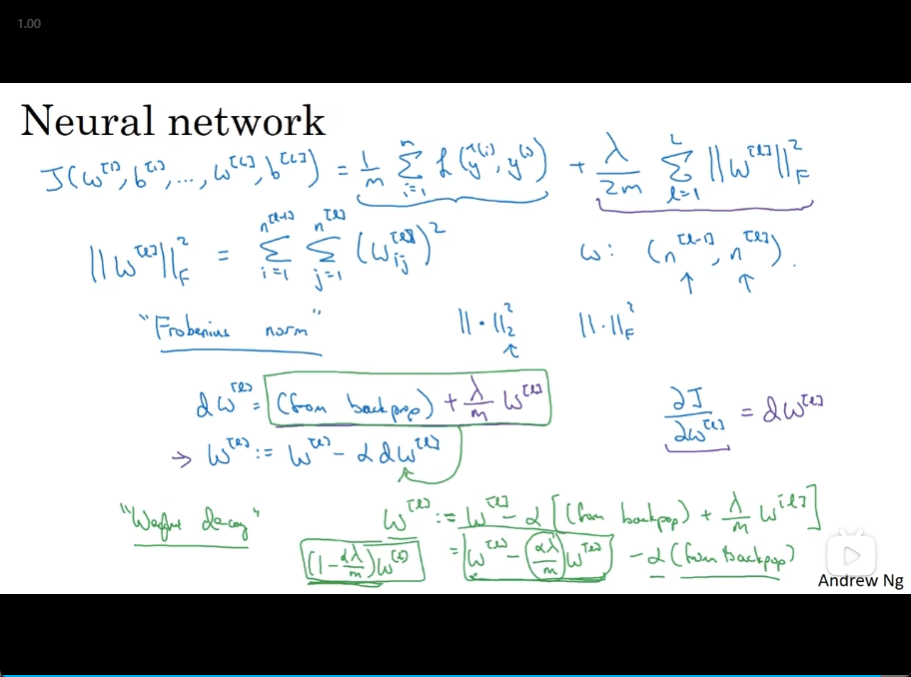 1.00
Neural network
J(w^[1], b^[1], ..., w^[L], b^[L]) = 1/m Σ_{i=1}^{n} L(ŷ^(i), y^(i)) + λ/2m Σ_{l=1}^{L} ||w^[l]||_F^2
||w^[l]||_F^2 = Σ_{i=1}^{n^[l-1]} Σ_{j=1}^{n^[l]} (w_ij^[l])^2 w: (n^[l-1], n^[l]).
"Frobenius norm" ||·||_2^2 ||·||_F^2
dw^[l] = (from backprop) + λ/m w^[l]
∂J/∂w^[l] = dw^[l]
→ w^[l] := w^[l] - α dw^[l]
"Weight decay" w^[l] := w^[l] - α [(from backpop) + λ/m w^[l]]
(1 - αλ/m) w^[l] = w^[l] - αλ/m w^[l] - α (from backpop)
Andrew Ng